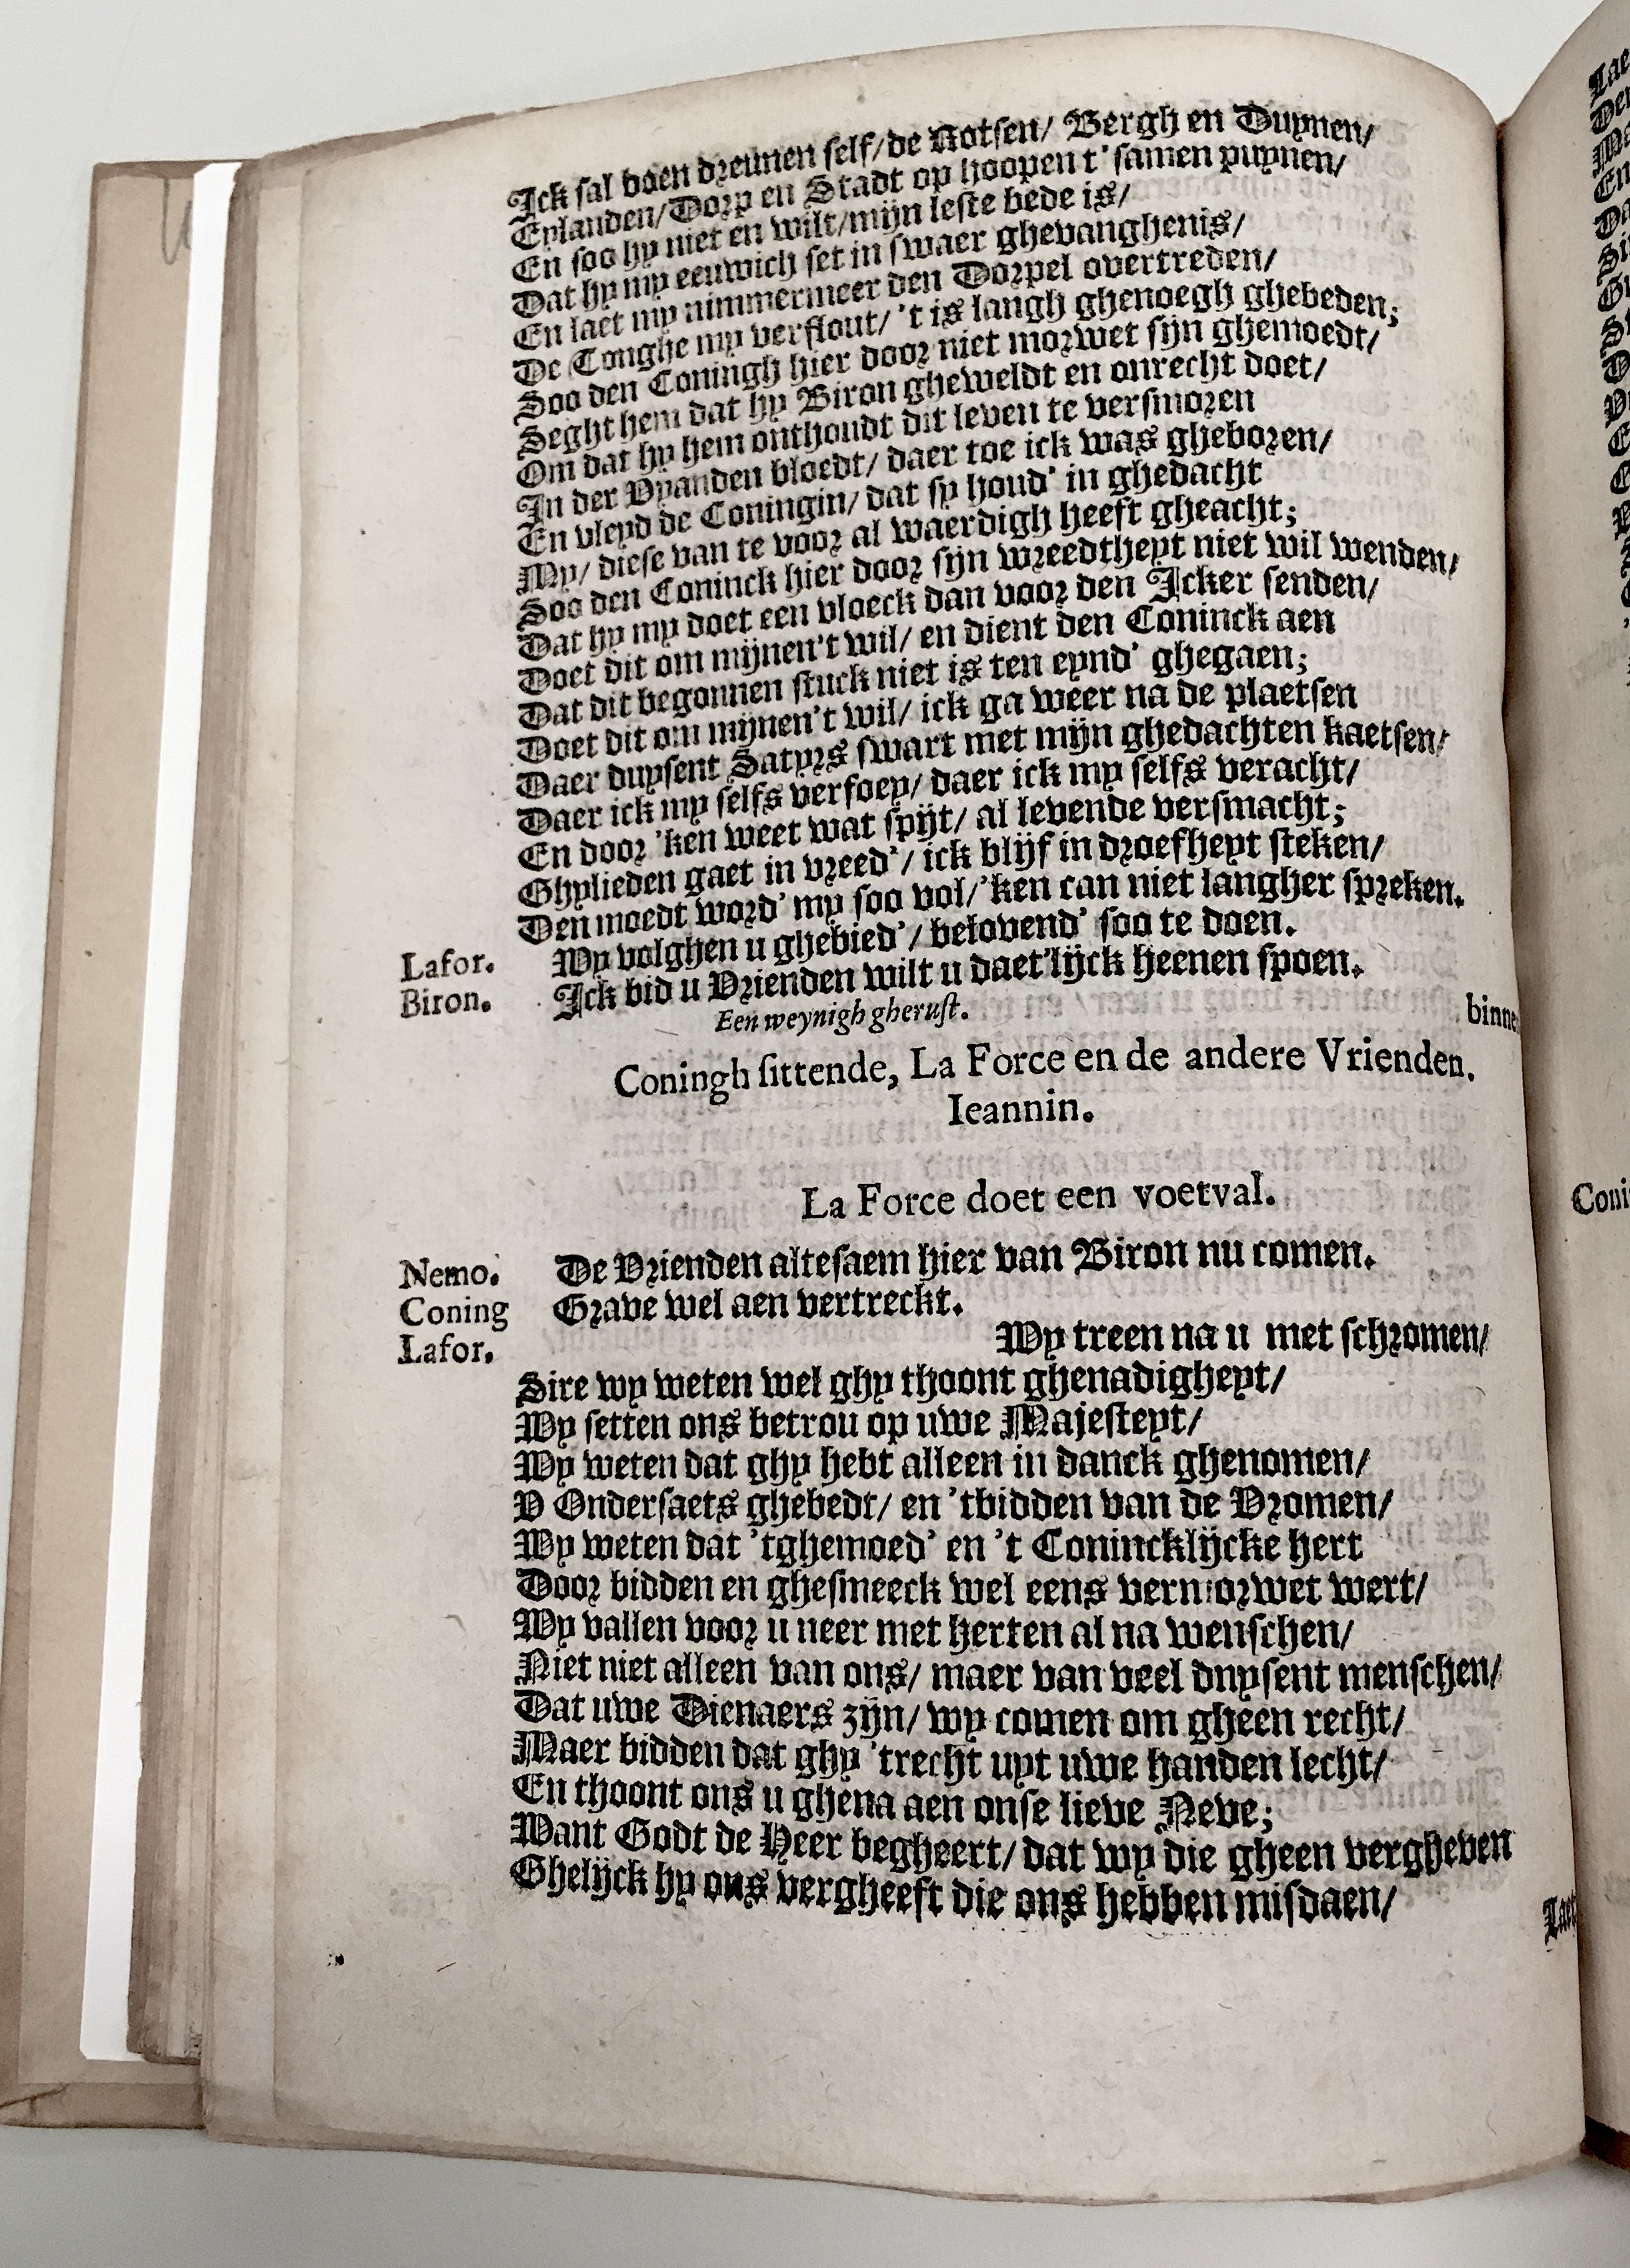 Ick sal doen dreunen self/de Rotsen/ Bergh en Duynen/
Eylanden/Dorp en Stadt op hoopen t'samen puynen/
En soo hy niet en wilt/mijn leste bede is/
Dat hy my eeuwich set in swaer ghevanghenis/
En laet my nimmermeer den Dorpel overtreden/
De Tonghe my verflout/ 't is langh ghenoegh ghebeden;
Soo den Coningh hier door niet morwet sijn ghemoedt/
Seght hem dat hy Biron gheweldt en onrecht doet/
Om dat hy hem onthoudt dit leven te versmoren
In der Vyanden bloedt/ daer toe ick was gheboren/
En vleyd de Coningin/ dat sy houd' in ghedacht
My/ diese van te voor al waerdigh heeft gheacht;
Soo den Coninck hier door sijn wreedtheyt niet wil wenden/
Dat hy my doet een vloeck dan voor den Icker senden/
Doet dit om mijnen't wil/ en dient den Coninck aen
Dat dit begonnen stuck niet is ten eynd' ghegaen;
Doet dit om mijnen't wil/ ick ga weer na de plaetsen
Daer duysent Satyrs swart met mijn ghedachten kaetsen/
Daer ick my selfs verfoey/ daer ick my selfs veracht/
En door 'ken weet wat spijt/ al levende versmacht;
Ghylieden gaet in vreed'/ ick blijf in droefheyt steken/
Den moedt word' my soo vol/'ken can niet langher spreken.
Lafor. Wy volghen u ghebied'/ belovend' soo te doen.
Biron. Ick bid u Vrienden wilt u daet'lijck heenen spoen.
Een weynigh gherust. binne
Coningh sittende, La Force en de andere Vrienden.
Ieannin.
La Force doet een voetval.
Nemo. De Vrienden altesaem hier van Biron nu comen.
Coning Grave wel aen vertreckt.
Lafor. Wy treen na u met schromen/
Sire wy weten wel ghy thoont ghenadigheyt/
Wy setten ons betrou op uwe Majesteyt/
Wy weten dat ghy hebt alleen in danck ghenomen/
V Ondersaets ghebedt/ en 'tbidden van de Vromen/
Wy weten dat 'tghemoed' en 't Conincklijcke hert
Door bidden en ghesmeeck wel eens vermorwet wert/
Wy vallen voor u neer met herten al na wenschen/
Niet niet alleen van ons/ maer van veel dnysent menschen/
Dat uwe Dienaers zijn/ wy comen om gheen recht/
Maer bidden dat ghy 'trecht uyt uwe handen lecht/
En thoont ons u ghena aen onse lieve Neve;
Want Godt de Heer begheert/ dat wy die gheen vergheven
Ghelijck hy ons vergheeft die ons hebben misdaen/